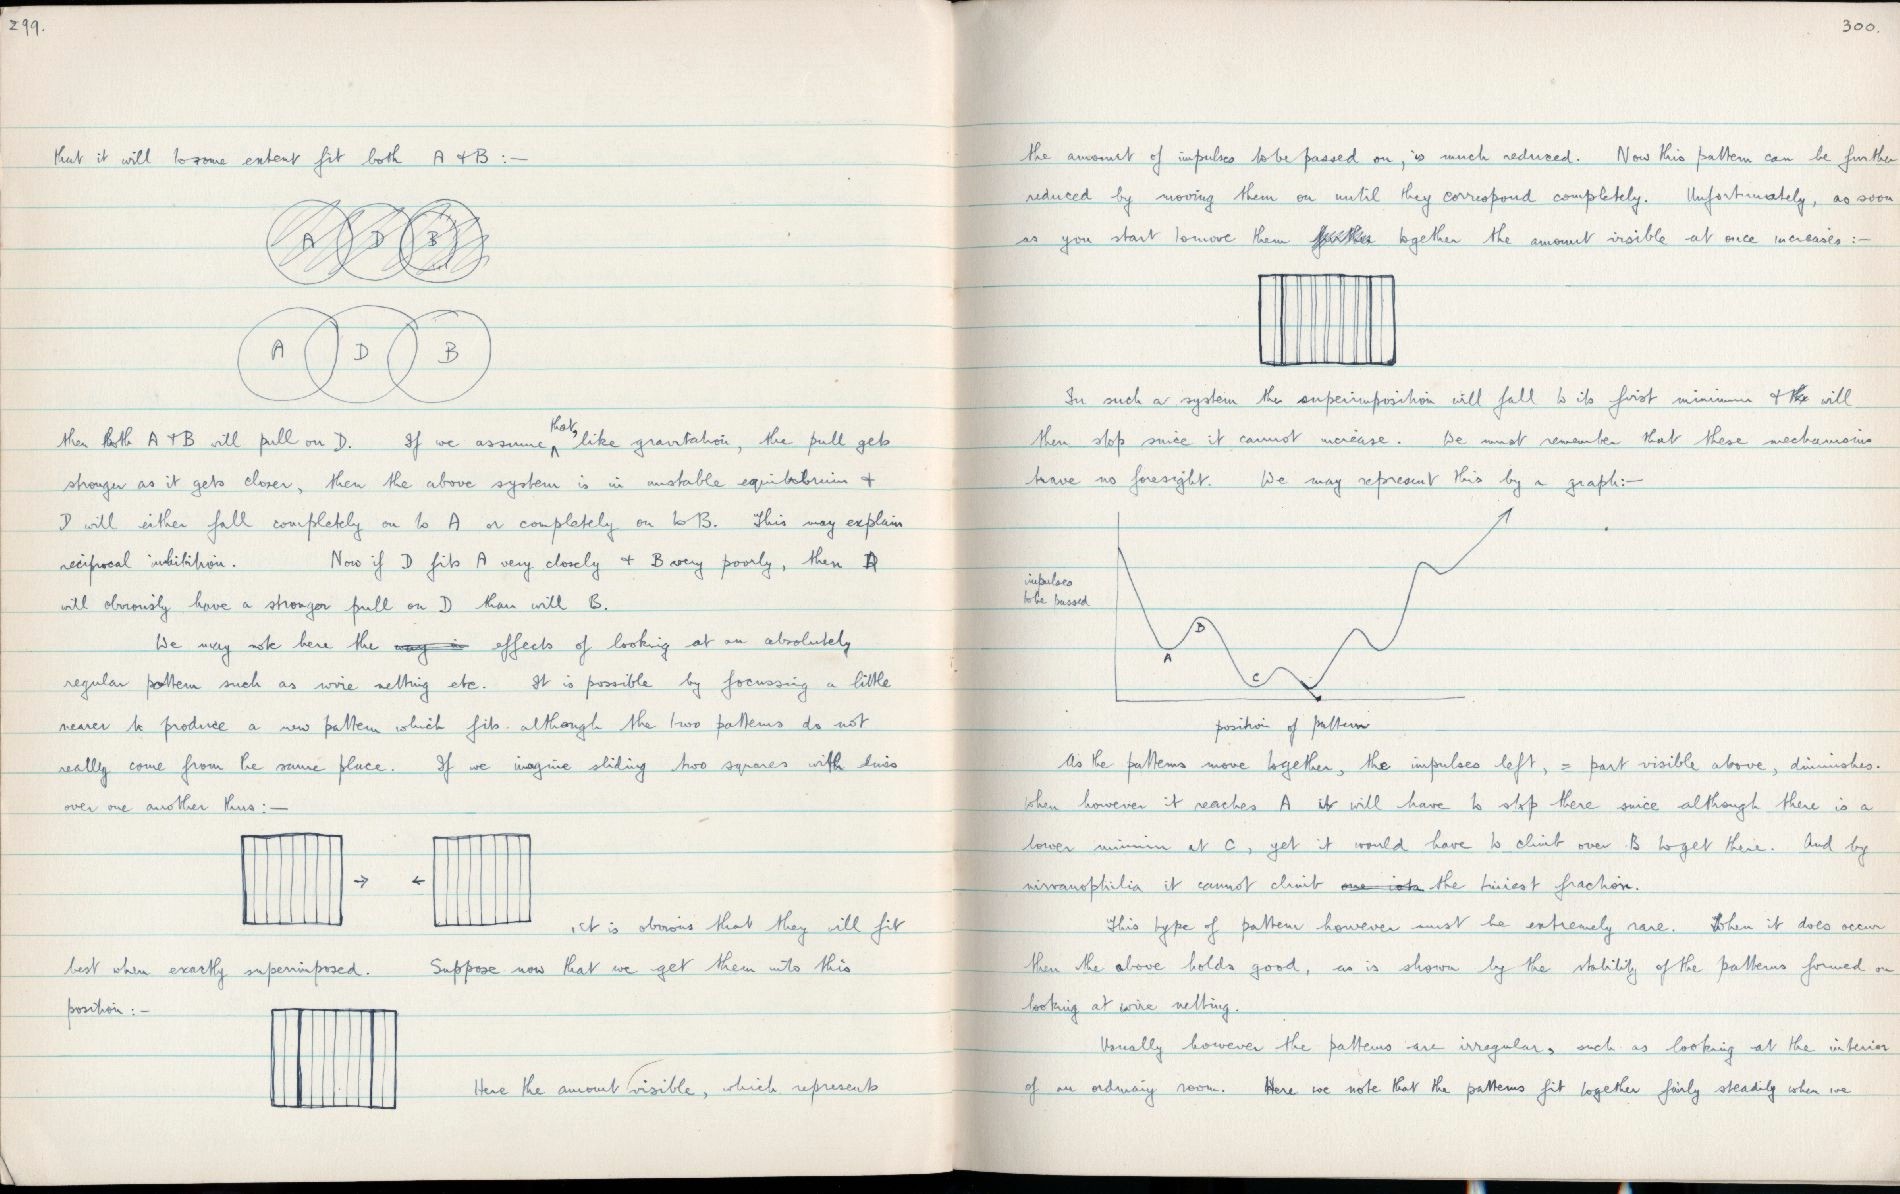 299.
that it will to some extent fit both A + B :-
A D B
A D B
then both A + B will pull on D. If we assume that, like gravitation, the pull gets
stronger as it gets closer, then the above system is in unstable equilibrium +
D will either fall completely on to A or completely on to B. This may explain
reciprocal inhibition. Now if D fits A very closely + B very poorly, then A
will obviously have a stronger pull on D than will B.
We may note here the way in effects of looking at an absolutely
regular pattern such as wire netting etc. It is possible by focussing a little
nearer to produce a new pattern which fits although the two patterns do not
really come from the same place. If we imagine sliding two squares with lines
over one another thus :-
, it is obvious that they will fit
best when exactly superimposed. Suppose now that we get them into this
position :-
Here the amount visible, which represents
300.
the amount of impulses to be passed on, is much reduced. Now this pattern can be further
reduced by moving them on until they correspond completely. Unfortunately, as soon
as you start to move them further together the amount visible at once increases :-
In such a system the superimposition will fall to its first minimum + will
then stop since it cannot increase. We must remember that these mechanisms
have no foresight. We may represent this by a graph :-
impulses
to be passed
A B C
position of pattern
As the patterns move together, the impulses left, = part visible above, diminishes.
When however it reaches A it will have to stop there since although there is a
lower minimum at C, yet it would have to climb over B to get there. And by
nirvanophilia it cannot climb one iota the tiniest fraction.
This type of pattern however must be extremely rare. When it does occur
then the above holds good, as is shown by the stability of the patterns formed on
looking at wire netting.
Usually however the patterns are irregular, such as looking at the interior
of an ordinary room. Here we note that the patterns fit together fairly steadily when we